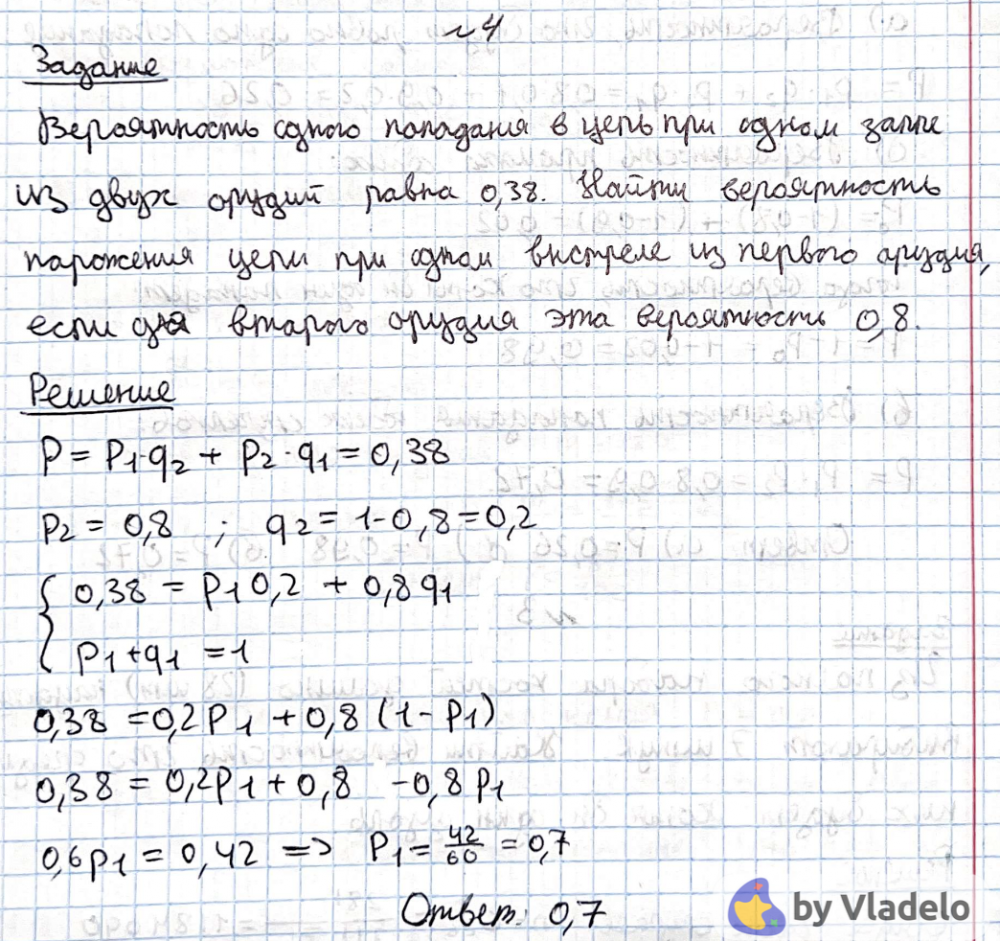 №4
Задание
Вероятность одного попадания в цель при одном залпе
из двух орудий равна 0,38. Найти вероятность
поражения цели при одном выстреле из первого орудия,
если для второго орудия эта вероятность 0,8.
Решение
P = P1·q2 + P2·q1 = 0,38
P2 = 0,8 ; q2 = 1-0,8=0,2
0,38 = P1 0,2 + 0,8 q1
P1+q1 =1
0,38 =0,2P1 +0,8 (1-P1)
0,38 = 0,2P1+0,8 -0,8 P1
0,6P1 = 0,42 => P1= 42/60 =0,7
Ответ: 0,7
by Vladelo